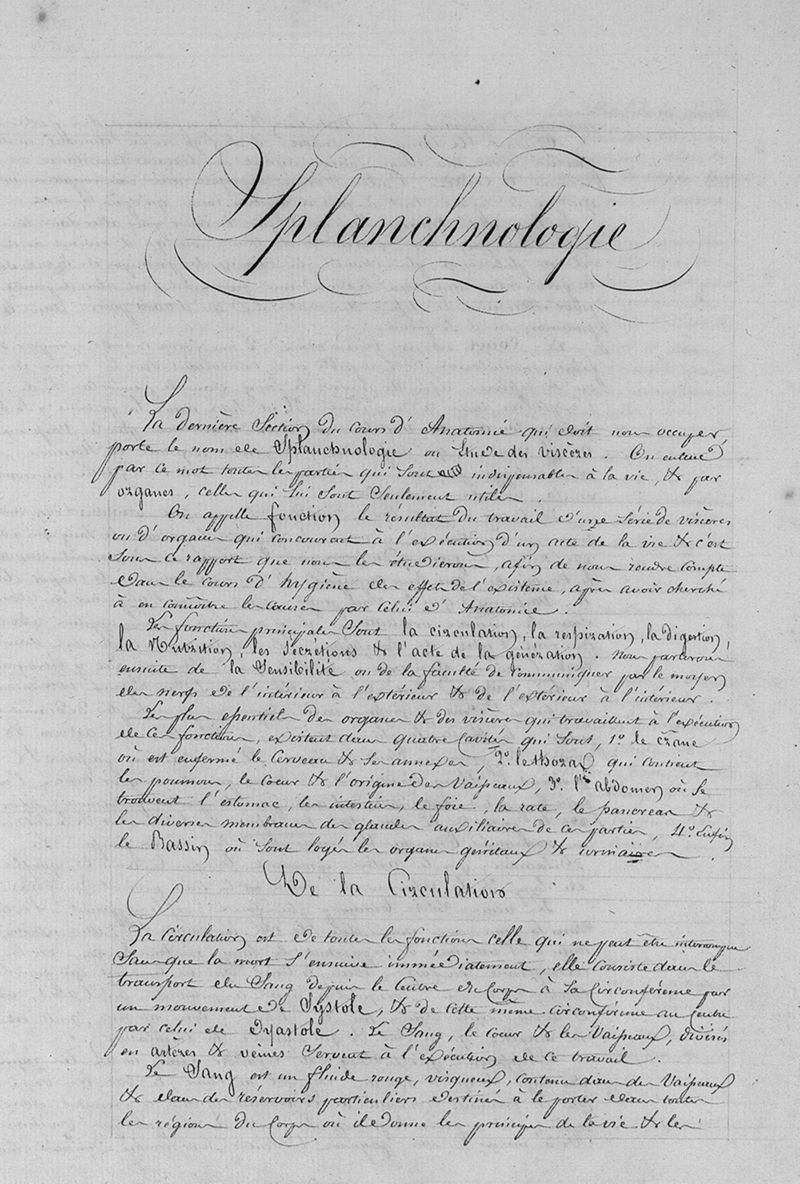 Splanchnologie
La dernière Section du cours d'Anatomie qui doit nous occuper,
porte le nom de Splanchnologie ou Etude des viscères. On entend
par ce mot toutes les parties qui sont indispensables à la vie, & par
organes, celles qui lui sont seulement utiles.
On appelle fonction le résultat du travail d'une série de viscères
ou d'organes qui concourent à l'exécution d'un acte de la vie & c'est
sous ce rapport que nous les étudierons, afin de nous rendre compte
dans le cours d'hygiène des effets de l'existence, après avoir cherché
à en connoitre les causes par celui d'Anatomie.
Les fonctions principales sont la circulation, la respiration, la digestion,
la Nutrition, les Sécrétions & l'acte de la génération. Nous parlerons
ensuite de la Sensibilité ou de la faculté de communiquer par le moyen
des nerfs de l'intérieur à l'extérieur & de l'extérieur à l'intérieur.
Les plus essentiels des organes & des viscères qui travaillent à l'exécution
de ces fonctions, existent dans quatre Cavités qui sont, 1º. le crane
où est enfermé le Cerveau & ses annexes, 2º. le thorax qui contient
les poumons, le coeur & l'origine des Vaisseaux, 3º. l'abdomen où se
trouvent l'estomac, les intestins, le foie, la rate, le pancreas &
les diverses membranes des glandes auxiliaires de ces parties, 4º. Enfin
le Bassin où sont logés les organes génitaux & urinaires.
De la Circulation
La circulation est de toutes les fonctions celle qui ne peut être interrompue
sans que la mort s'ensuive immédiatement, elle consiste dans le
transport du Sang depuis le Centre du Corps à sa Circonférence par
un mouvement de Systole, & de cette même circonférence au Centre
par celui de Dyastole. Le Sang, le coeur & les Vaisseaux, divisés
en artères & veines servent à l'exécution de ce travail.
Le Sang est un fluide rouge, visqueux, contenu dans des Vaisseaux
& dans des réservoirs particuliers destinés à le porter dans toutes
les régions du Corps où il donne les principes de la vie & les